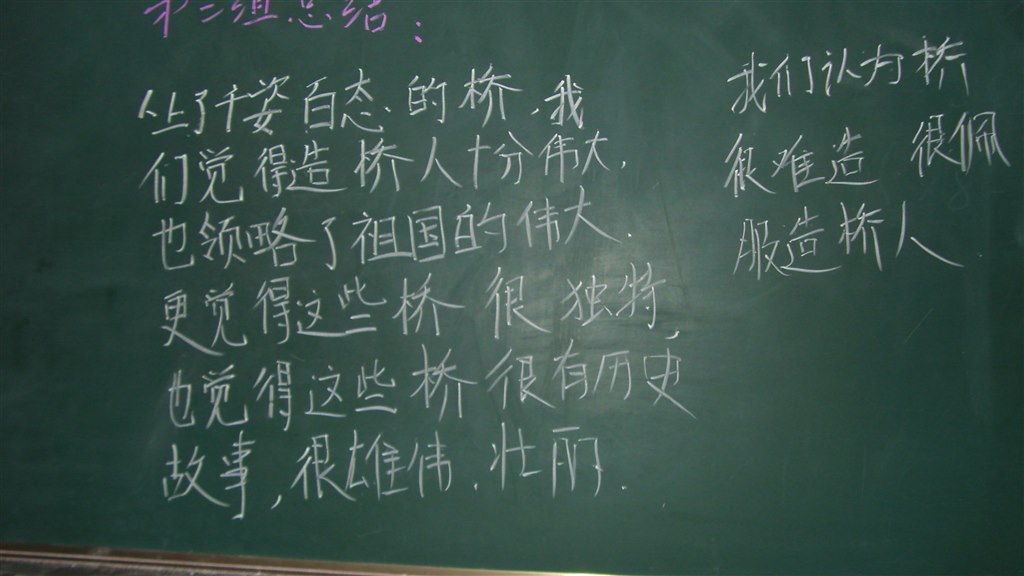 第三组总结：
从上了千姿百态的桥，我
们觉得造桥人十分伟大，
也领略了祖国的伟大．
更觉得这些桥很独特，
也觉得这些桥很有历史
故事，很雄伟．壮丽．
我们认为桥
很难造 很佩
服造桥人